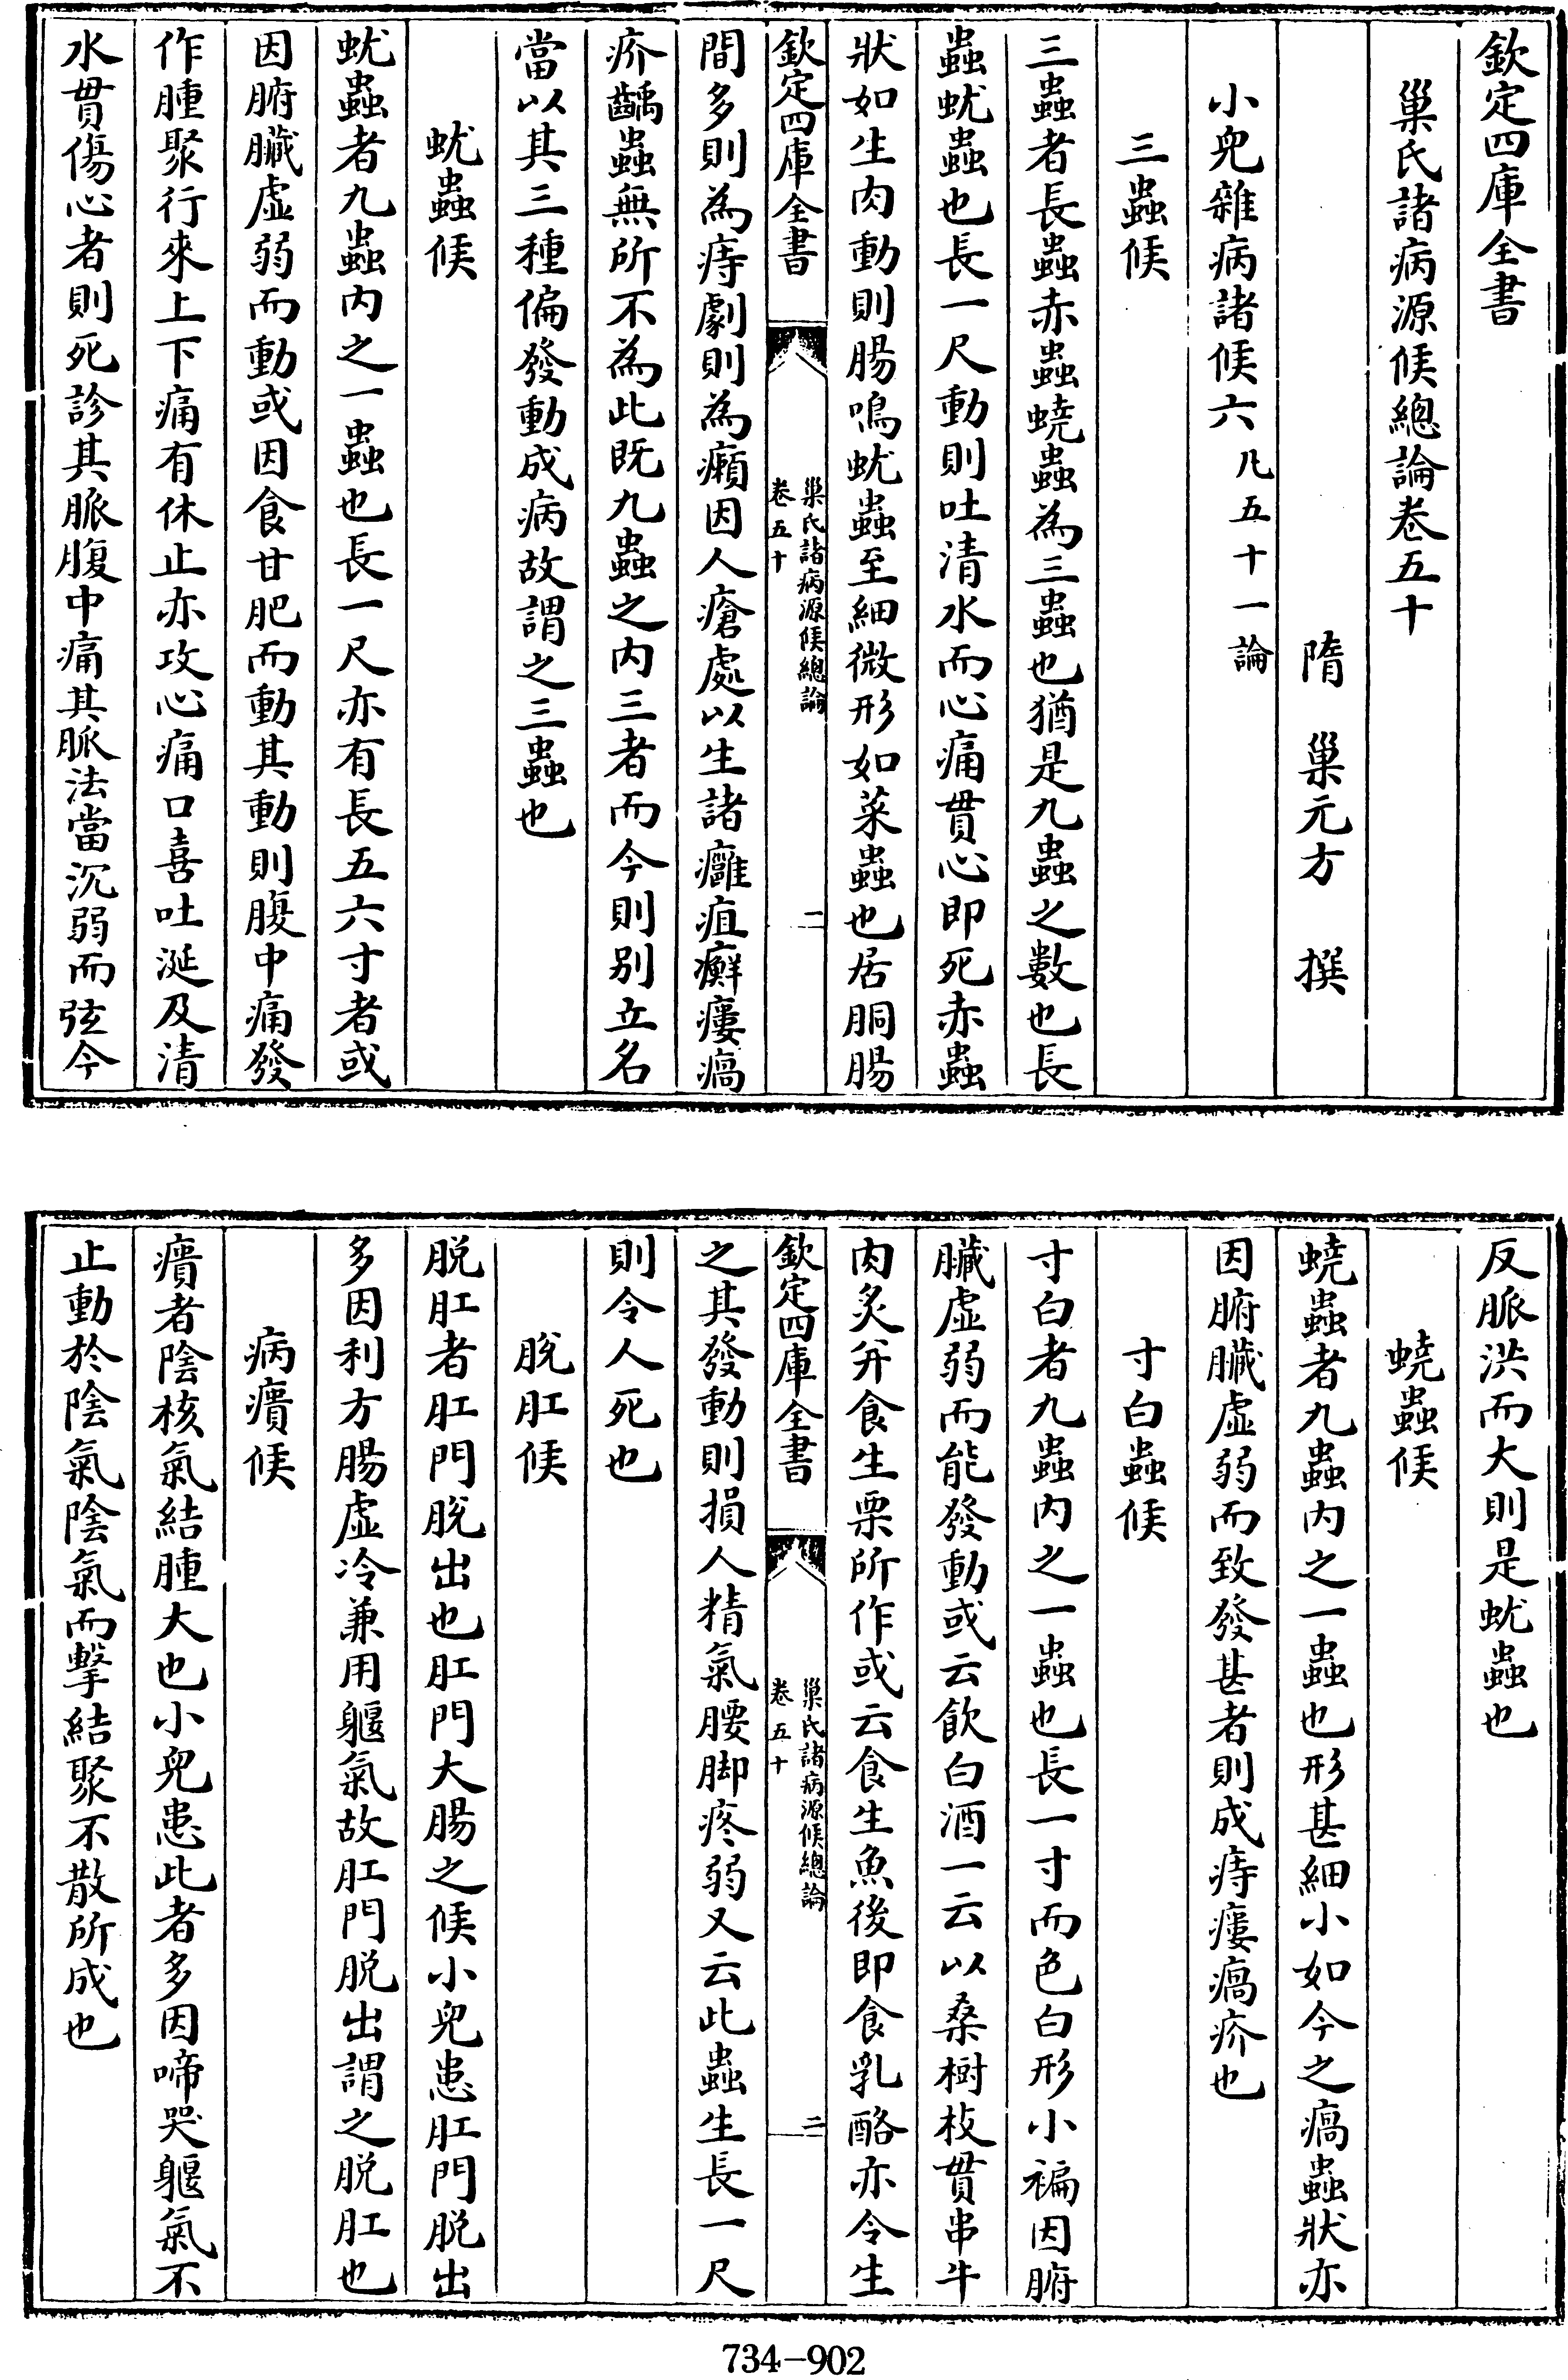 欽定四庫全書
巢氏諸病源候總論卷五十
隋 巢元方 撰
小兒雜病諸候六凡五十一論
三蟲候
三蟲者長蟲赤蟲蟯蟲為三蟲也猶是九蟲之數也長
蟲蚘蟲也長一尺動則吐清水而心痛貫心即死赤蟲
狀如生肉動則腸鳴蚘蟲至細微形如菜蟲也居胴腸
欽定四庫全書
巢氏諸病源候總論
卷五十
一
間多則為痔劇則為癩因人瘡處以生諸癰疽癬瘻瘑
疥齲蟲無所不為此既九蟲之内三者而今則别立名
當以其三種偏發動成病故謂之三蟲也
蚘蟲候
蚘蟲者九蟲内之一蟲也長一尺亦有長五六寸者或
因腑臟虛弱而動或因食甘肥而動其動則腹中痛發
作腫聚行來上下痛有休止亦攻心痛口喜吐涎及清
水貫傷心者則死診其脈腹中痛其脈法當沉弱而弦今
反脈洪而大則是蚘蟲也
蟯蟲候
蟯蟲者九蟲内之一蟲也形甚細小如今之瘑蟲狀亦
因腑臟虛弱而致發甚者則成痔瘻瘑疥也
寸白蟲候
寸白者九蟲内之一蟲也長一寸而色白形小褊因腑
臟虛弱而能發動或云飲白酒一云以桑樹枝貫串牛
肉炙并食生栗所作或云食生魚後即食乳酪亦令生
欽定四庫全書
巢氏諸病源候總論
卷五十
二
之其發動則損人精氣腰脚疼弱又云此蟲生長一尺
則令人死也
脫肛候
脫肛者肛門脫出也肛門大腸之候小兒患肛門脫出
多因利方腸虛冷兼用軀氣故肛門脫出謂之脫肛也
病㿉候
㿉者陰核氣結腫大也小兒患此者多因啼哭軀氣不
止動於陰氣陰氣而擊結聚不散所成也
734-902